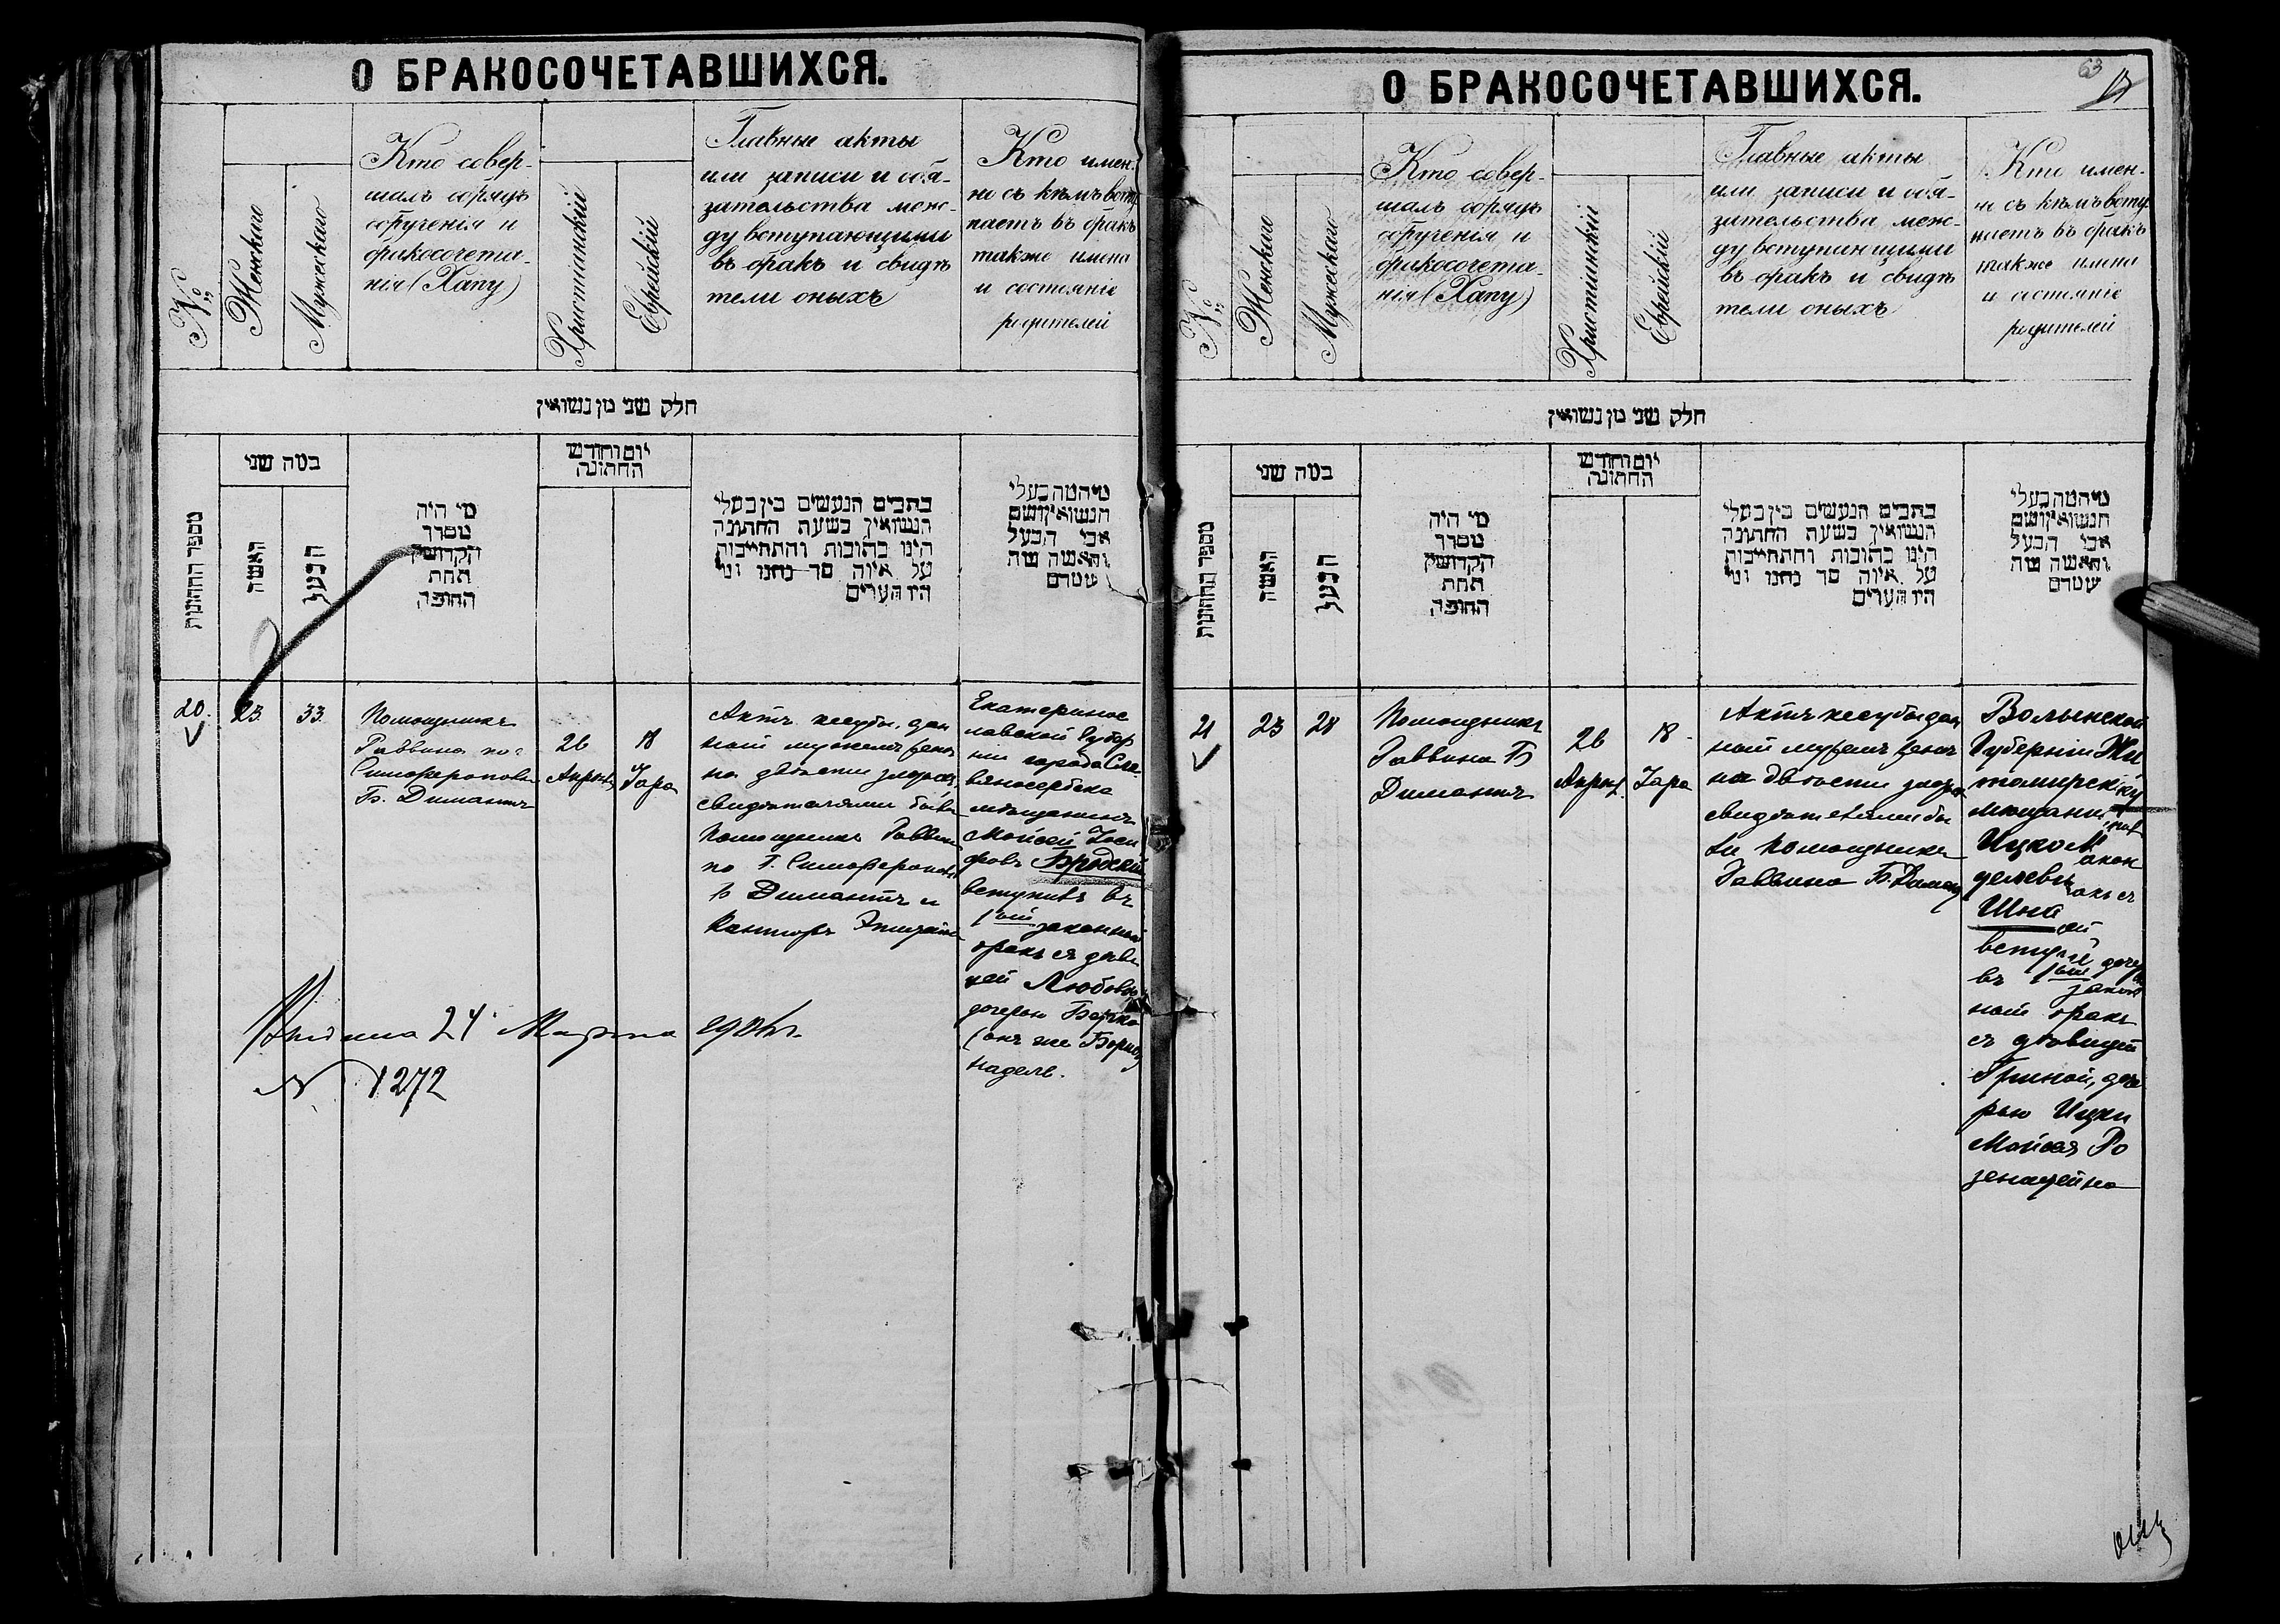 О БРАКОСОЧЕТАВШИХСЯ.
№
Женскаго
Мужескаго
Кто совер-
шалъ обрядъ
обрученія и
бракосочета-
нія (Хапу)
Христіанскій
Еврейскій
Главные акты
или записи и обя-
зательства меж-
ду вступающими
въ бракъ и свидѣ
тели оныхъ
Кто имен-
но съ кѣмъ всту
паетъ въ бракъ
также имена
и состояніе
родителей
חלק שני מן נשואין
מספר החתונות
כמה שני
האשה
הבעל
מי היה
מסדר
הקדושין
תחת
החופה
יום וחודש
החתונה
כתבים הנעשים בין בעלי
הנשואין בשעת החתונה
היינו כתובות והתחייבות
על איזה סך נתנו ומי
היו העדים
מי המה בעלי
הנשואין ושם
אבי הבעל
והאשה מה
שמדם
20.
23.
33.
Помощникъ
Раввина по г
Симферополю
Б. Димантъ
26
Апрѣля
18
Іара
Актъ кесубы, дан
ный мужемъ женѣ
на двѣсти злотыхъ,
свидѣтелями были
Помощникъ Раввина
по Г. Симферополю
Б Димантъ и
Канторъ
Екатеринос
лавской Губер
ніи города Сла-
вяносербска
мѣщанинъ
Мойсей Іоси
фовъ Бродскій
вступилъ въ
1ый законный
бракъ съ дѣви
цей Любовью
дочерью Берка
(онъ же Борисъ)
Наделя.
24 Марта 190
N 1272
О БРАКОСОЧЕТАВШИХСЯ.
63
№
Женскаго
Мужескаго
Кто совер-
шалъ обрядъ
обрученія и
бракосочета-
нія (Хапу)
Христіанскій
Еврейскій
Главные акты
или записи и обя-
зательства меж-
ду вступающими
въ бракъ и свидѣ
тели оныхъ
Кто имен-
но съ кѣмъ всту
паетъ въ бракъ
также имена
и состояніе
родителей
חלק שני מן נשואין
מספר החתונות
כמה שני
האשה
הבעל
מי היה
מסדר
הקדושין
תחת
החופה
יום וחודש
החתונה
כתבים הנעשים בין בעלי
הנשואין בשעת החתונה
היינו כתובות והתחייבות
על איזה סך נתנו ומי
היו העדים
מי המה בעלי
הנשואין ושם
אבי הבעל
והאשה מה
שמדם
21
23
28
Помощникъ
Раввина Б
Димантъ
26
Апрѣл.
18
Іара
Актъ кесубы дан
ный мужемъ женѣ
на двѣсти злотыхъ
свидѣтелями бы
ли Помощникъ
Раввина Б. Димантъ
Волынской
Губерніи Жи
томирскій
мѣщанин
Ицко
делевъ
Шна
вступ
въ 1ый закон
ный бракъ
съ дѣвицей
Гриной, доче
рью Ицки
Мойсея Ро
зенштейна